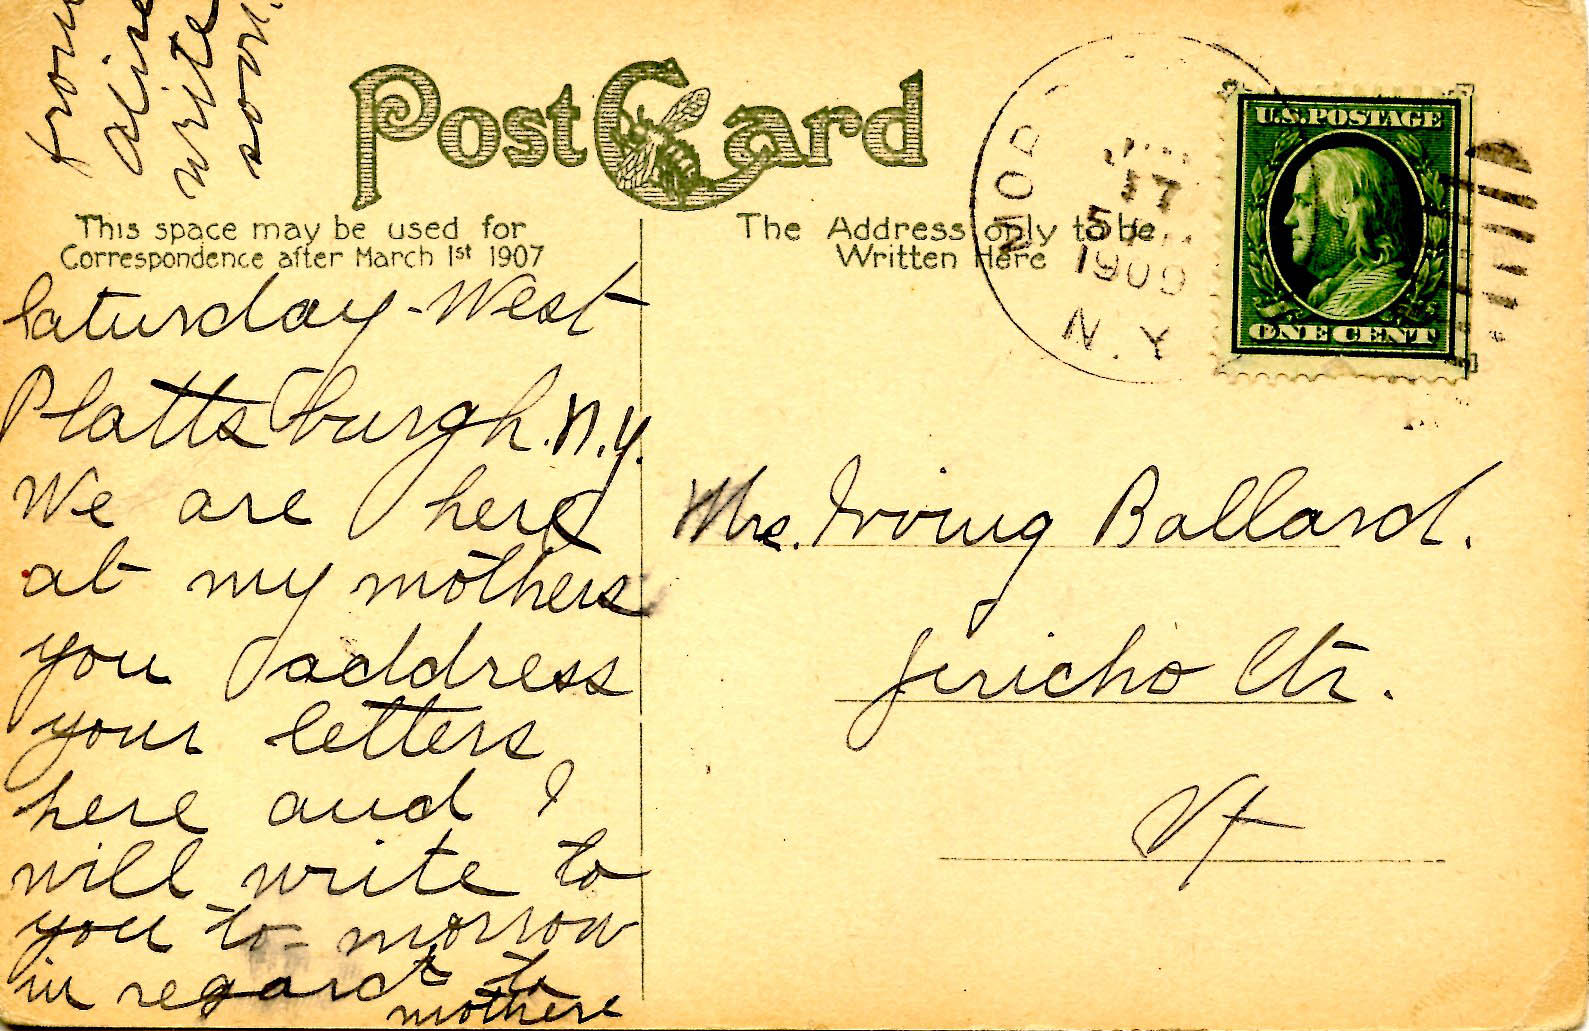 from
aline
write
soon.
Post Card
This space may be used for
Correspondence after March 1st 1907
The Address only to be
Written Here
MOR
17
5
1909
N.Y.
U.S. POSTAGE
ONE CENT
Saturday - West
Plattsburgh. N.Y.
We are here
at my mothers
you address
your letters
here and I
will write to
you to-morrow
in regard to
mothers
Mrs. Irving Ballard.
Jericho Ctr.
Vt